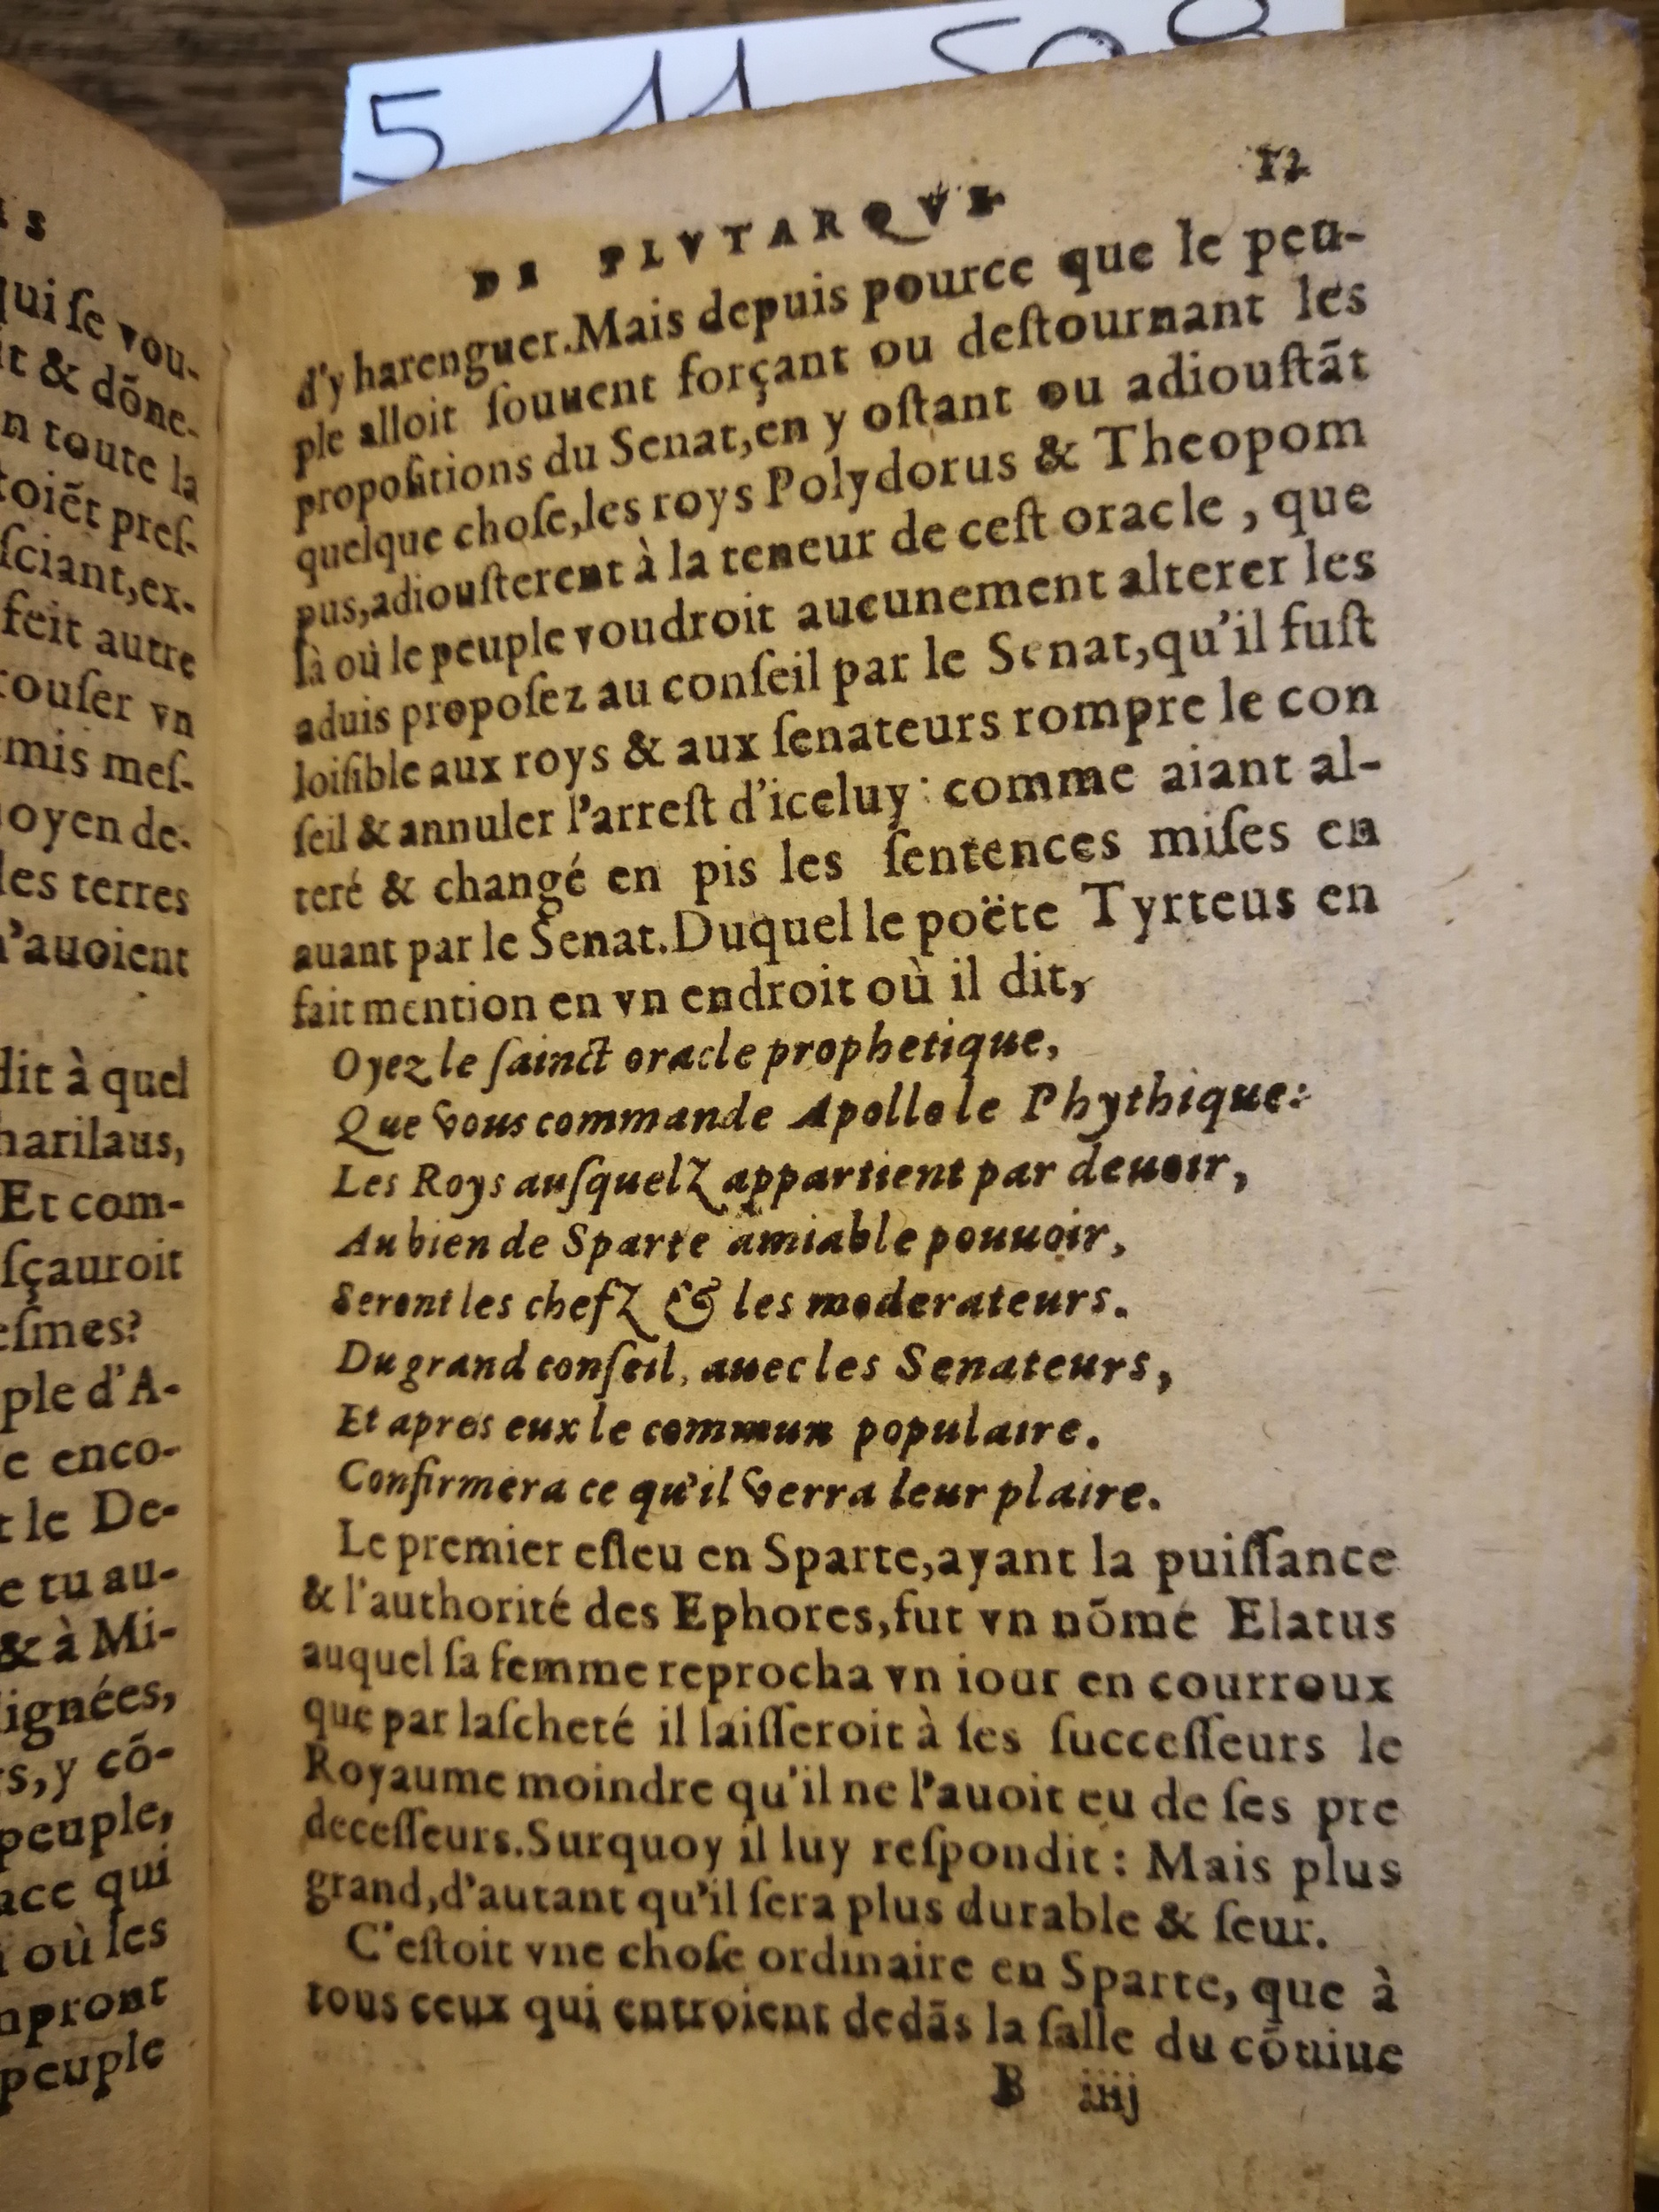 5 11 508
s
qui ſe vou-
it & dõne-
n toute la
toiẽt preſ-
ſciant, ex-
feit autre
rouſer vn
mis meſ-
oyen de-
les terres
n'auoient
dit à quel
harilaus,
Et com-
ſçauroit
eſmes?
ple d'A-
e enco-
t le De-
e tu au-
& à Mi-
lignées,
rs, y cõ-
peuple,
ace qui
où les
mpront
peuple
DE PLVTARQVE 12
d'y harenguer. Mais depuis pource que le peu-
ple alloit ſouuent forçant ou deſtournant les
propoſitions du Senat, en y oſtant ou adiouſtãt
quelque choſe, les roys Polydorus & Theopom
pus, adiouſterent à la teneur de ceſt oracle, que
là où le peuple voudroit aucunement alterer les
aduis propoſez au conſeil par le Senat, qu'il fuſt
loiſible aux roys & aux ſenateurs rompre le con
ſeil & annuler l'arreſt d'iceluy: comme aiant al-
teré & changé en pis les ſentences miſes en
auant par le Senat. Duquel le poëte Tyrteus en
fait mention en vn endroit où il dit,
Oyez le ſainct oracle prophetique,
Que vous commande Apollo le Phythique:
Les Roys auſquelz appartient par deuoir,
Au bien de Sparte amiable pouuoir,
Seront les chefz & les moderateurs.
Du grand conſeil, auec les Senateurs,
Et apres eux le commun populaire.
Confirmera ce qu'il verra leur plaire.
Le premier eſleu en Sparte, ayant la puiſſance
& l'authorité des Ephores, fut vn nõmé Elatus
auquel ſa femme reprocha vn iour en courroux
que par laſcheté il laiſſeroit à ſes ſucceſſeurs le
Royaume moindre qu'il ne l'auoit eu de ſes pre
deceſſeurs. Surquoy il luy reſpondit: Mais plus
grand, d'autant qu'il ſera plus durable & ſeur.
C'eſtoit vne choſe ordinaire en Sparte, que à
tous ceux qui entroient dedãs la ſalle du cõuiue
B iiij